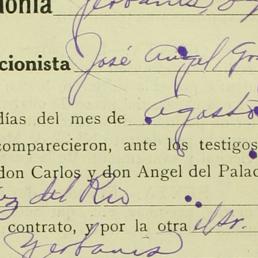 onia Yerbanis, Dgo
cionista José Angel Gon
días del mes de Agosto
comparecieron, ante los testigos
don Carlos y don Angel del Palac
ez del Río
contrato, y por la otra el sr.
Yerbanis